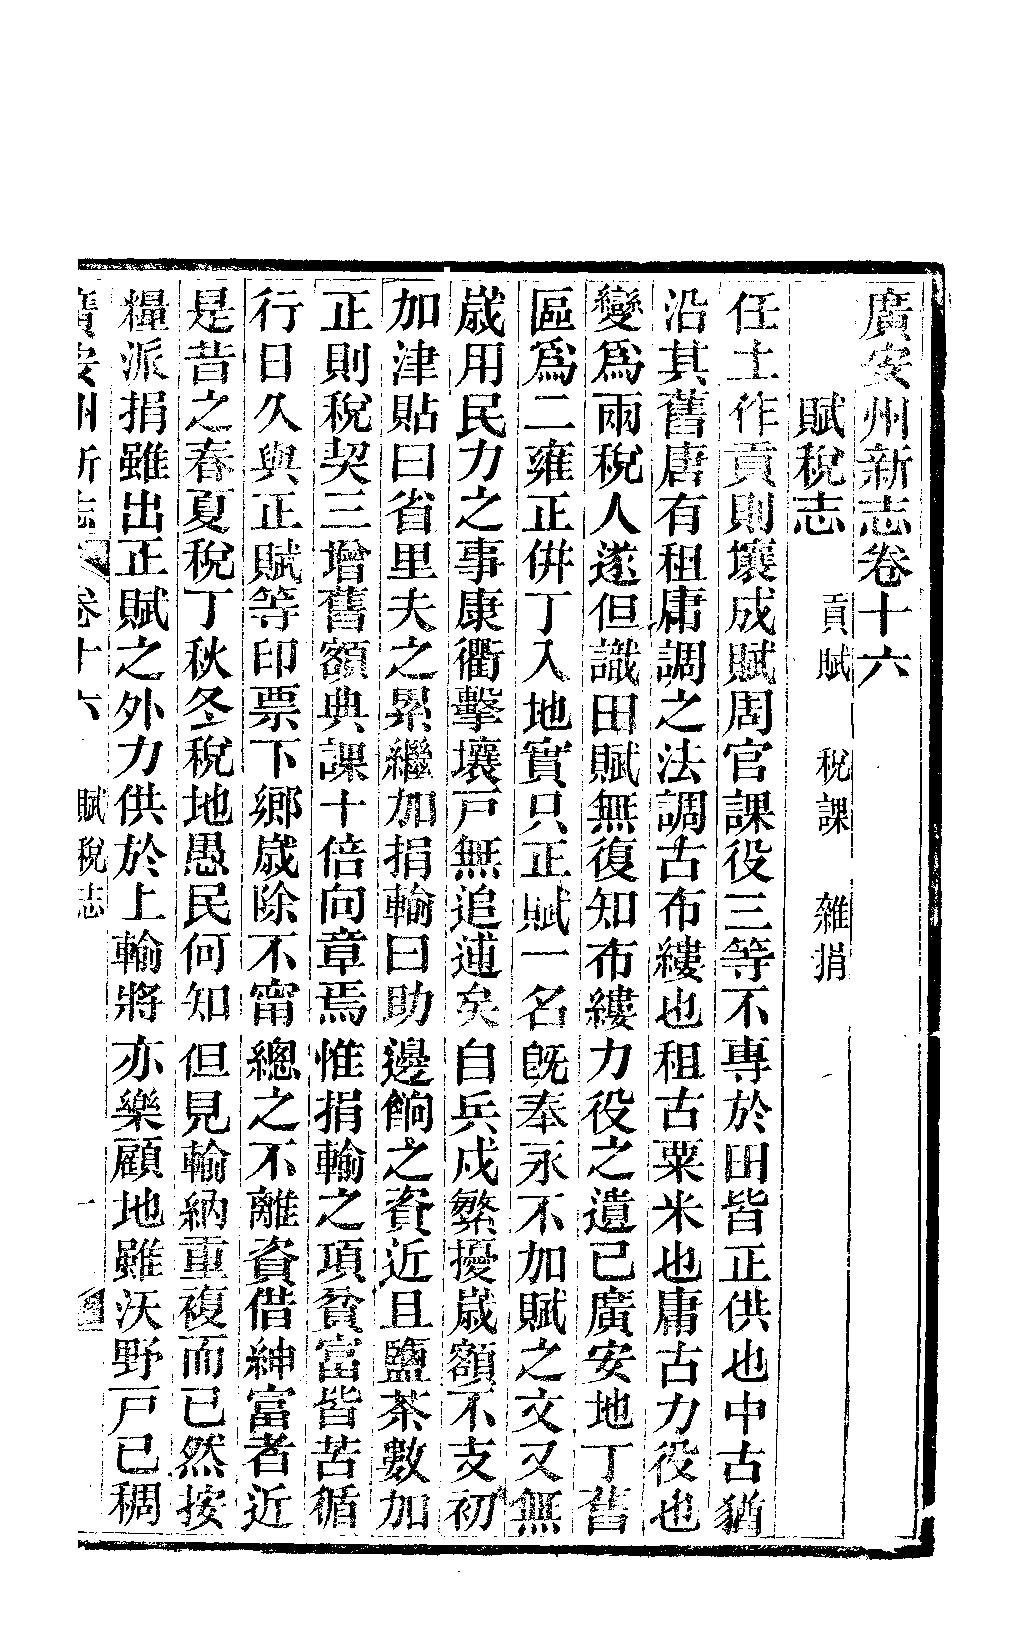 廣安州新志卷十六
賦稅志 貢賦 稅課 雜捐
任土作貢則壤成賦周官課役三等不專於田皆正供也中古猶
沿其舊唐有租庸調之法調古布縷也租古粟米也庸古力役也
變爲兩稅人遂但識田賦無復知布縷力役之遺已廣安地丁舊
區爲二雍正併丁入地實只正賦一名旣奉永不加賦之文又無
歲用民力之事康衢擊壤戸無追逋矣自兵戍繁擾歲額不支初
加津貼曰省里夫之累繼加捐輸曰助邊餉之資近且鹽茶數加
正則稅契三增舊額典課十倍向章焉惟捐輸之項貧富皆苦循
行日久與正賦等印票下鄉歲除不甯總之不離資借紳富者近
是昔之春夏稅丁秋冬稅地愚民何知但見輸納重複而已然按
糧派捐雖出正賦之外力供於上輸將亦樂顧地雖沃野戸已稠
廣安州新志 卷十六 賦稅志 一